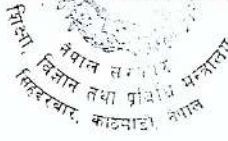 नेपाल सरकार
शिक्षा, विज्ञान तथा प्रविधि मन्त्रालय
सिंहदरबार, काठमाडौं, नेपाल